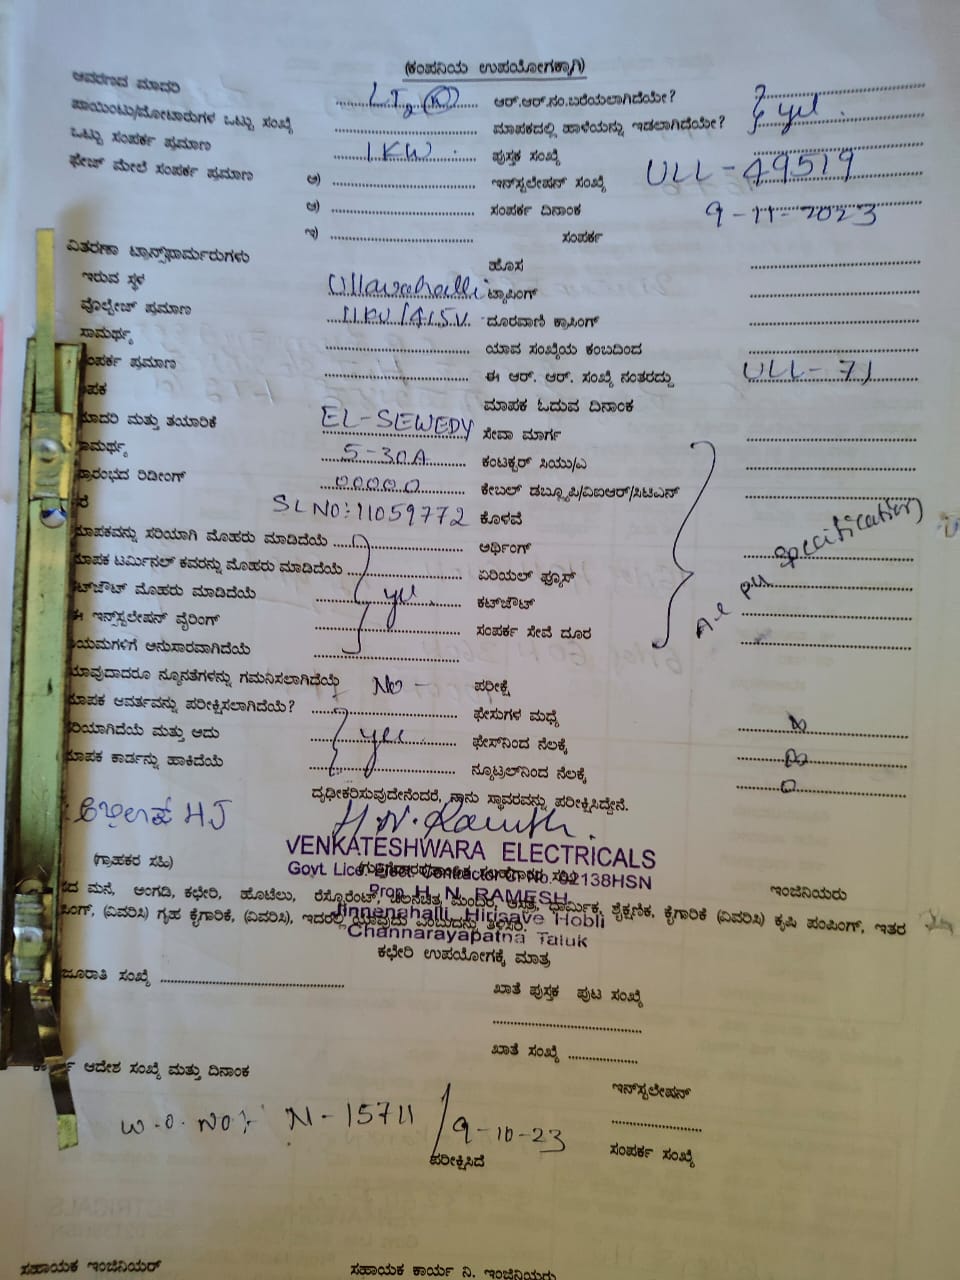 (ಕಂಪನಿಯ ಉಪಯೋಗಕ್ಕಾಗಿ)
ಆವರಣದ ಮಾದರಿ LT2 (K) ಆರ್.ಆರ್.ನಂ.ಬರೆಯಲಾಗಿದೆಯೇ?
ಪಾಯಿಂಟು/ಮೋಟಾರುಗಳ ಒಟ್ಟು ಸಂಖ್ಯೆ ಮಾಪಕದಲ್ಲಿ ಹಾಳೆಯನ್ನು ಇಡಲಾಗಿದೆಯೇ? yes
ಒಟ್ಟು ಸಂಪರ್ಕ ಪ್ರಮಾಣ 1KW ಪುಸ್ತಕ ಸಂಖ್ಯೆ
ಫೇಜ್ ಮೇಲೆ ಸಂಪರ್ಕ ಪ್ರಮಾಣ ಅ) ಇನ್‌ಸ್ಟಲೇಷನ್ ಸಂಖ್ಯೆ ULL-49519
ಆ) ಸಂಪರ್ಕ ದಿನಾಂಕ 9-11-2023
ಇ) ಸಂಪರ್ಕ
ವಿತರಣಾ ಟ್ರಾನ್ಸ್‌ಫಾರ್ಮರುಗಳು ಹೊಸ
ಇರುವ ಸ್ಥಳ Ullavahalli ಟ್ಯಾಪಿಂಗ್
ವೊಲ್ಟೇಜ್ ಪ್ರಮಾಣ 11KV/415V. ದೂರವಾಣಿ ಕ್ರಾಸಿಂಗ್
ಸಾಮರ್ಥ್ಯ ಯಾವ ಸಂಖ್ಯೆಯ ಕಂಬದಿಂದ
ಂಪರ್ಕ ಪ್ರಮಾಣ ಈ ಆರ್. ಆರ್. ಸಂಖ್ಯೆ ನಂತರದ್ದು ULL-71
ಾಪಕ ಮಾಪಕ ಓದುವ ದಿನಾಂಕ
ಮಾದರಿ ಮತ್ತು ತಯಾರಿಕೆ EL-SEWEDY ಸೇವಾ ಮಾರ್ಗ
ಾಮರ್ಥ್ಯ 5-30A ಕಂಟಕ್ಟರ್ ಸಿಯು/ಎ
್ರಾರಂಭದ ರಿಡೀಂಗ್ 00000 ಕೇಬಲ್ ಡಬ್ಲ್ಯೂಪಿ/ವಿಐಆರ್/ಸಿಟಿಎಸ್
ರೆ SLNO:11059772 ಕೊಳವೆ
ಮಾಪಕವನ್ನು ಸರಿಯಾಗಿ ಮೊಹರು ಮಾಡಿದೆಯೆ ಅರ್ಥಿಂಗ್
ಮಾಪಕ ಟರ್ಮಿನಲ್ ಕವರನ್ನು ಮೊಹರು ಮಾಡಿದೆಯೆ ಏರಿಯಲ್ ಫ್ಯೂಸ್ As per specification
ಟ್‌ಔಟ್ ಮೊಹರು ಮಾಡಿದೆಯೆ yes ಕಟ್‌ಔಟ್
ಈ ಇನ್‌ಸ್ಟಲೇಷನ್ ವೈರಿಂಗ್ ಸಂಪರ್ಕ ಸೇವೆ ದೂರ
ಯಮಗಳಿಗೆ ಅನುಸಾರವಾಗಿದೆಯೆ
ಯಾವುದಾದರೂ ನ್ಯೂನತೆಗಳನ್ನು ಗಮನಿಸಲಾಗಿದೆಯೆ No - ಪರೀಕ್ಷೆ
ಮಾಪಕ ಆವರ್ತವನ್ನು ಪರೀಕ್ಷಿಸಲಾಗಿದೆಯೆ? ಫೇಸುಗಳ ಮಧ್ಯೆ
ರಿಯಾಗಿದೆಯೆ ಮತ್ತು ಅದು yes ಫೇಸ್‌ನಿಂದ ನೆಲಕ್ಕೆ
ಮಾಪಕ ಕಾರ್ಡನ್ನು ಹಾಕಿದೆಯೆ ನ್ಯೂಟ್ರಲ್‌ನಿಂದ ನೆಲಕ್ಕೆ
ದೃಢೀಕರಿಸುವುದೇನೆಂದರೆ, ನಾನು ಸ್ಥಾವರವನ್ನು ಪರೀಕ್ಷಿಸಿದ್ದೇನೆ.
H.N. Ramesh.
VENKATESHWARA ELECTRICALS
(ಗ್ರಾಹಕರ ಸಹಿ) ಇಂಜಿನಿಯರು
02138HSN
Prop. H. N. RAMESH
ದ ಮನೆ, ಅಂಗಡಿ, ಕಛೇರಿ, ಹೊಟೆಲು, ರೆಸ್ಟೊರೆಂಟ್, ಚಲನಚಿತ್ರ ಮಂದಿರ, ಆಸ್ಪತ್ರೆ, ಧಾರ್ಮಿಕ, ಶೈಕ್ಷಣಿಕ, ಕೈಗಾರಿಕೆ (ವಿವರಿಸಿ) ಕೃಷಿ ಪಂಪಿಂಗ್, ಇತರ
Jinnenahalli, Hirisave Hobli
ಿಂಗ್, (ವಿವರಿಸಿ) ಗೃಹ ಕೈಗಾರಿಕೆ, (ವಿವರಿಸಿ), ಇದರಲ್ಲಿ ಯಾವುದು ಎಂಬುದನ್ನು ತಿಳಿಸಿರಿ.
Channarayapatna Taluk
ಕಛೇರಿ ಉಪಯೋಗಕ್ಕೆ ಮಾತ್ರ
ಜೂರಾತಿ ಸಂಖ್ಯೆ ಖಾತೆ ಪುಸ್ತಕ ಪುಟ ಸಂಖ್ಯೆ
ಖಾತೆ ಸಂಖ್ಯೆ
ಆದೇಶ ಸಂಖ್ಯೆ ಮತ್ತು ದಿನಾಂಕ ಇನ್‌ಸ್ಟಲೇಷನ್
W.O. NO:- N-15711/9-10-23
ಪರೀಕ್ಷಿಸಿದೆ ಸಂಪರ್ಕ ಸಂಖ್ಯೆ
ಸಹಾಯಕ ಇಂಜಿನಿಯರ್ ಸಹಾಯಕ ಕಾರ್ಯ ನಿ. ಇಂಜಿನಿಯರು